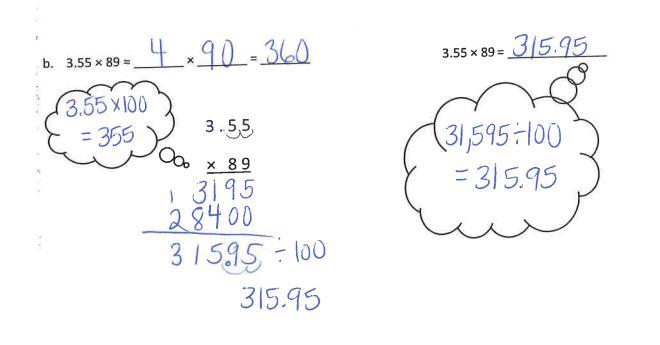 b. 3.55 × 89 ≈ 4 × 90 = 360
3.55 × 89 = 315.95
3.55 × 100
= 355
3.55
× 89
1 3195
28400
31595 ÷ 100
315.95
31,595 ÷ 100
= 315.95